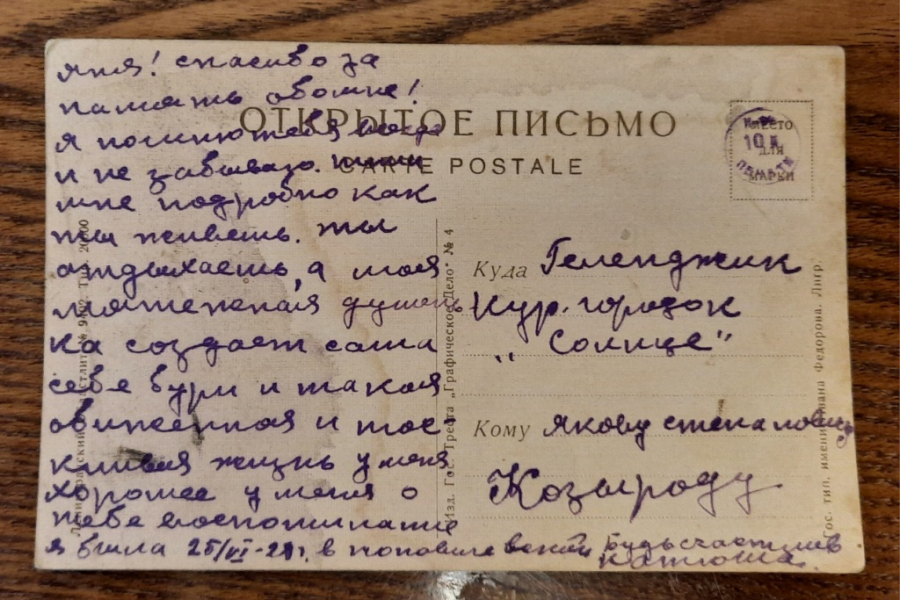 Яня! спасибо за
память обомне!
я помню тебя всегда
и не забываю. пиши
мне подробно как
ты живешь. ты
отдыхаешь, а моя
мятежная душень
ка создает сама
себе бури и такая
обиженная и тос-
кливая жизнь у меня
хорошее у меня о
тебе воспоминание
я была 25/VI-29г. в
Будь счастлив
Катюша.
ОТКРЫТОЕ ПИСЬМО
CARTE POSTALE
МЕСТО
ДЛЯ
МАРКИ
Куда Геленджик
Кур. городок
"Солнце"
Кому Якову Степановичу
Козыроду
Изд. Гос. Треста „Графическое Дело" № 4
Гос. тип. имени Ивана Федорова. Лигр.